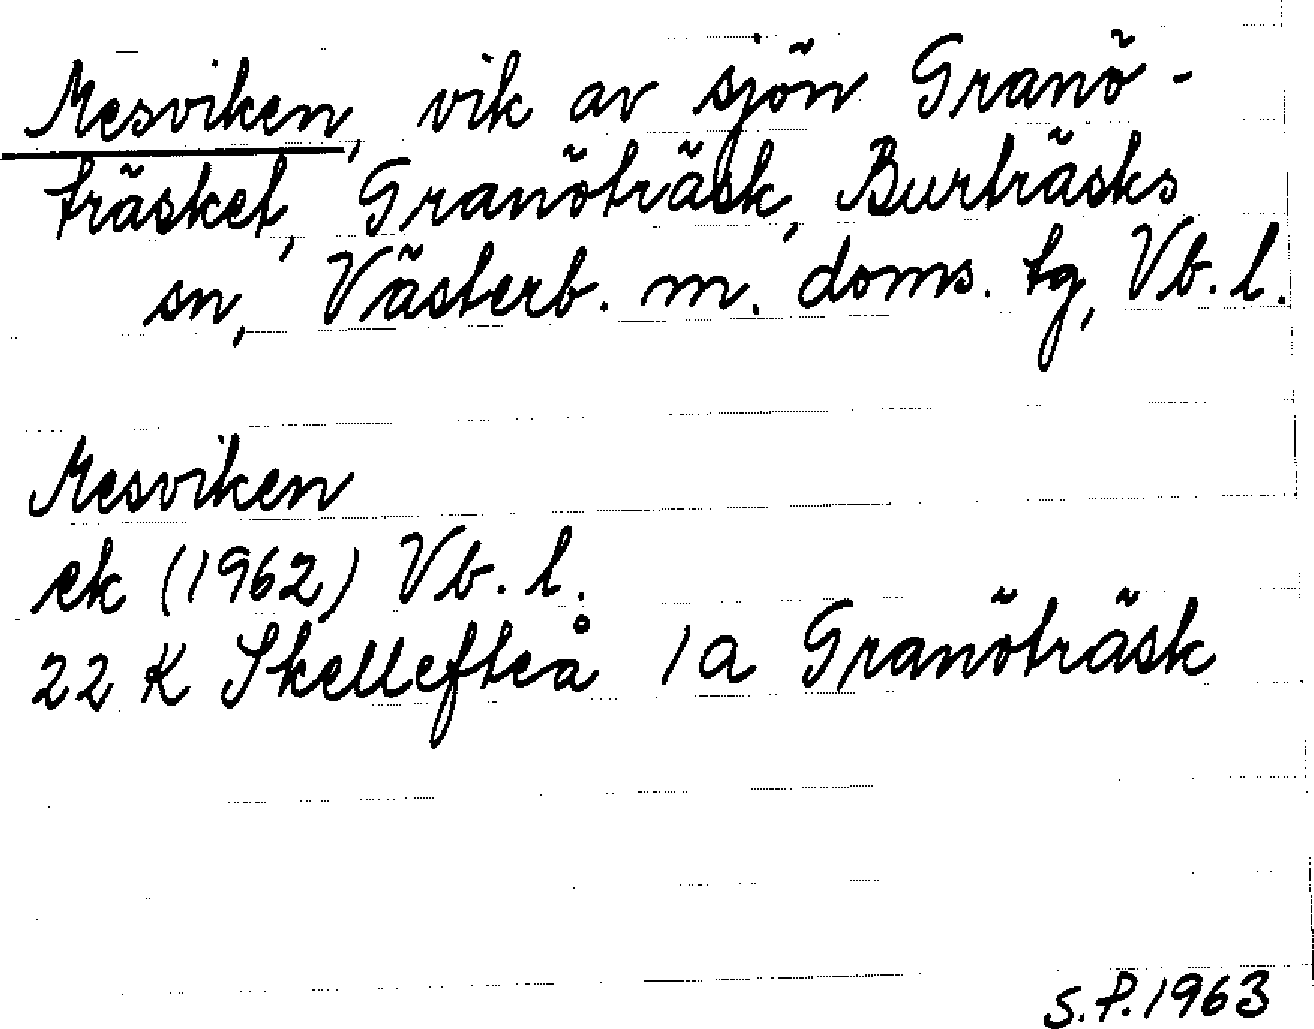 Mesviken, vik av sjön Granö-
träsket, Granöträsk, Burträsks
sn, Västerb. m. doms. tg, Vb. l.
Mesviken
ek (1962) Vb. l.
22 K Skellefteå 1a Granöträsk
S.P. 1963